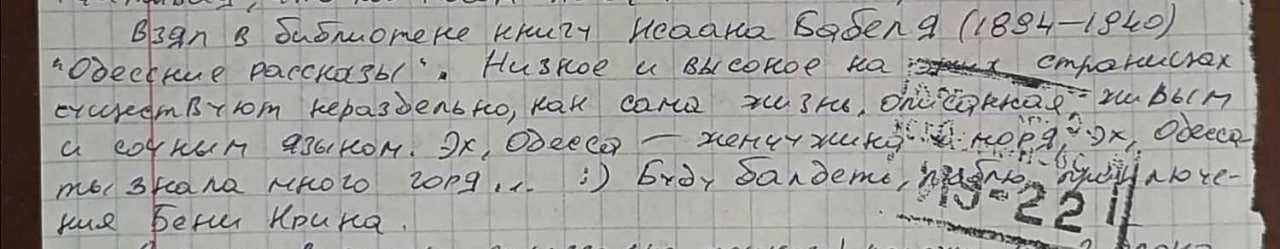 Взял в библиотеке книгу Исаака Бабеля (1894–1940)
"Одесские рассказы". Низкое и высокое на этих страницах
существуют нераздельно, как сама жизнь, описанная живым
и сочным языком. Эх, Одесса — жемчужина у моря, Эх, Одесса
ты знала много горя... :) Буду балдеть, люблю приключе-
ния Бени Крика.
ЛУ-22